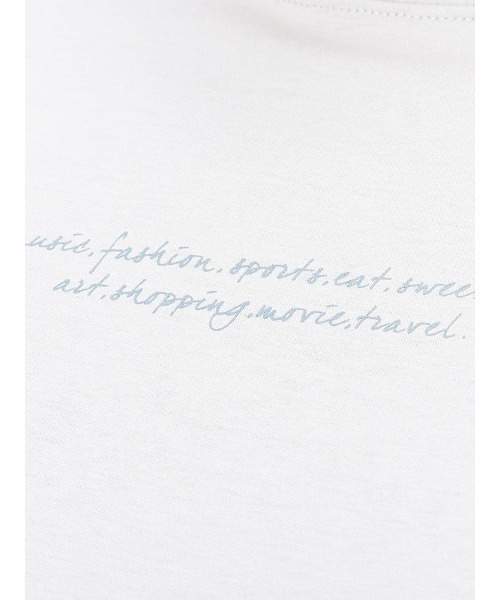 usic.fashion.sports.eat.swee
art.shopping.movie.travel.